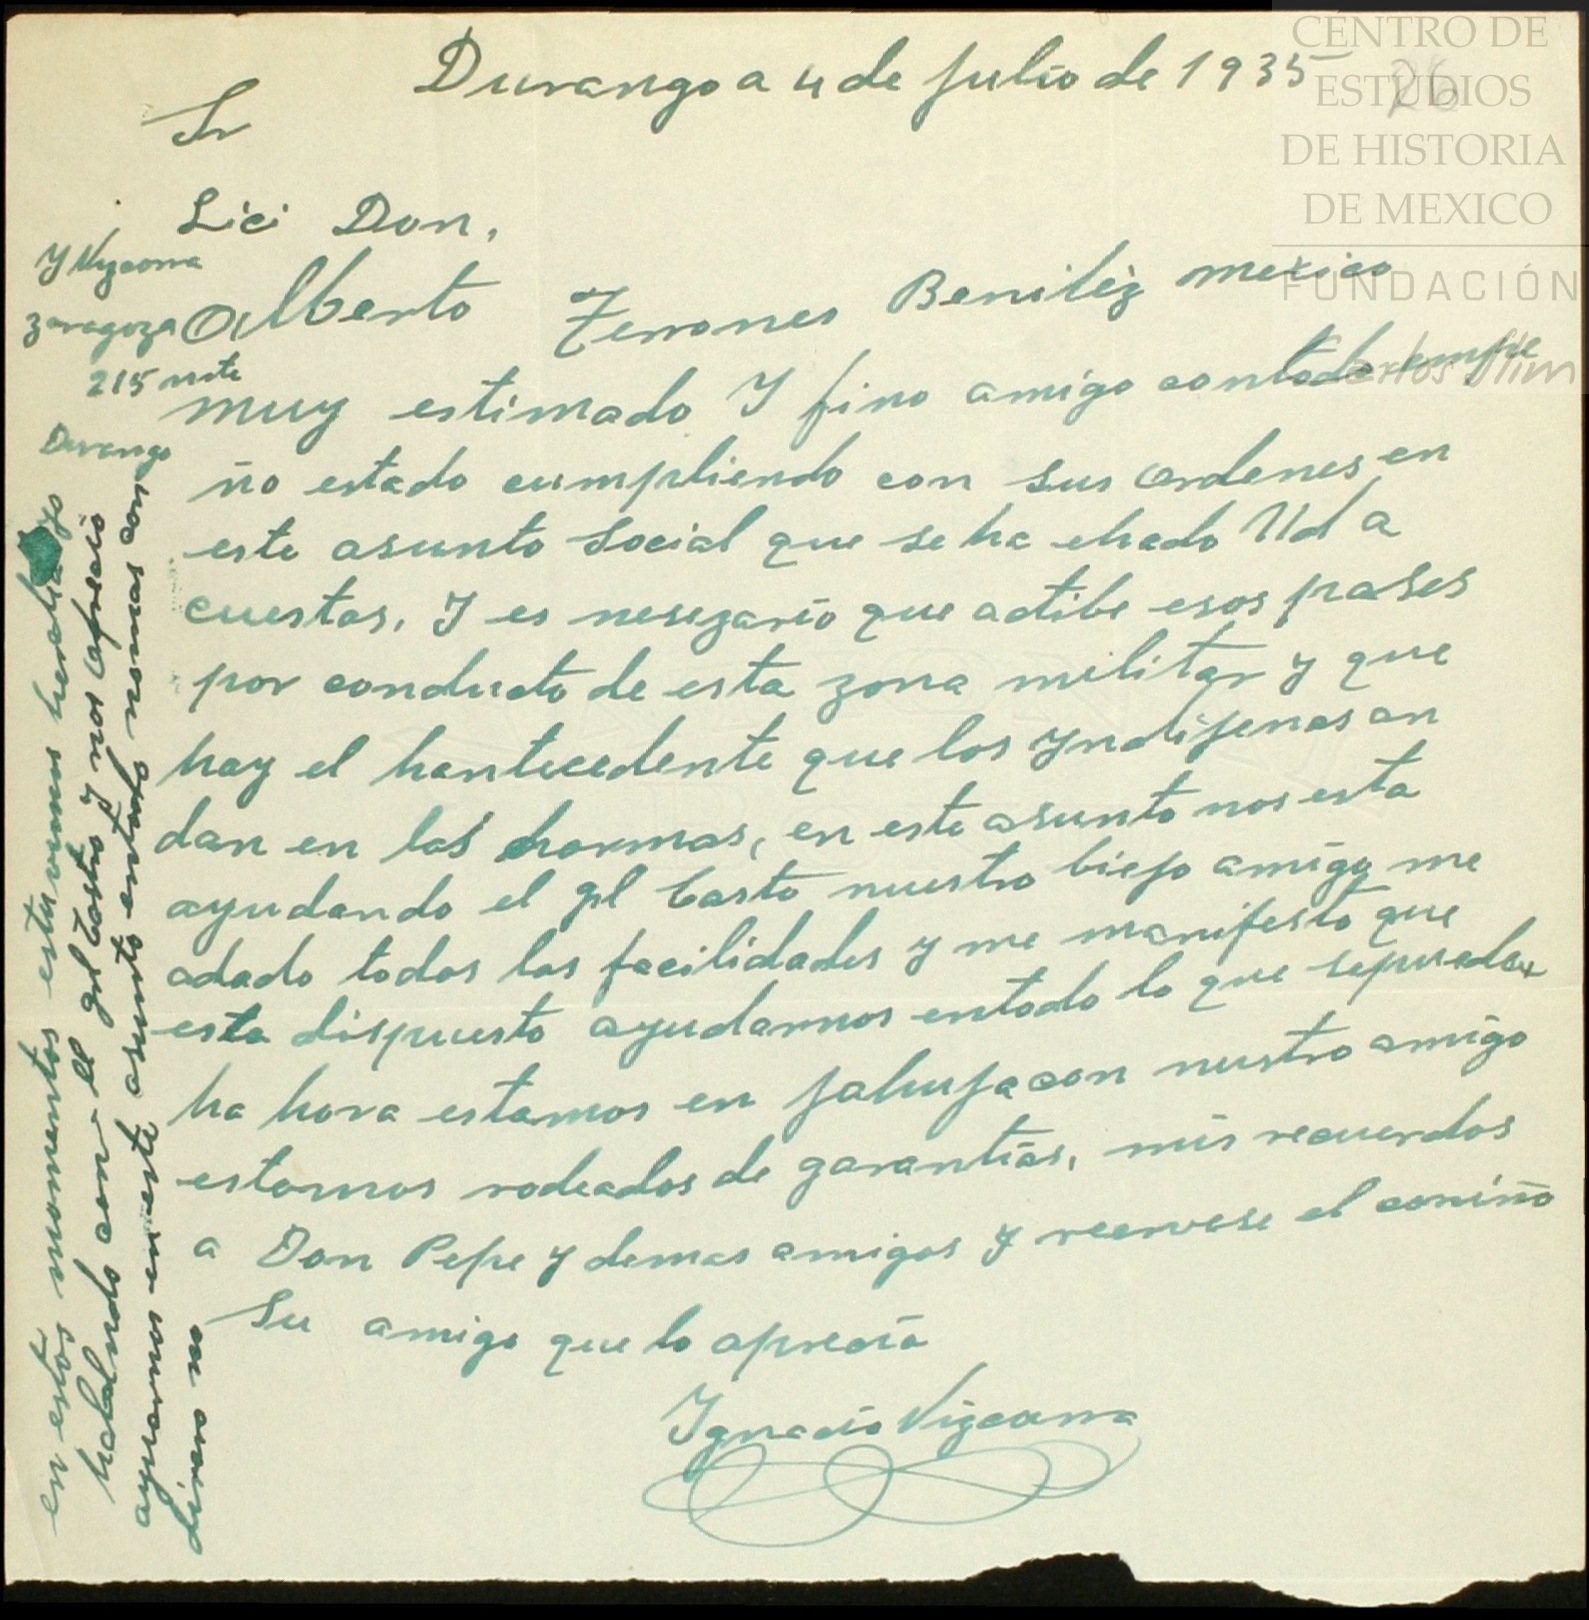 Durango a 4 de Julio de 1935
26
Sr
Lici Don,
Alberto Terrones Benitez mexico
muy estimado Y fino amigo contodo empe
ño estado cumpliendo con sus ordenes en
este asunto Social que se ha ehado Ud a
cuestas, Y es nesezario que actibe esos pases
por conducto de esta zona militar y que
hay el hantecedente que los Yndijenas an
dan en las hormas, en este asunto nos esta
ayudando el gl Casto nuestro biejo amigo me
adado todas las facilidades y me manifesto que
esta dispuesto ayudarnos entodo lo que sepueda
ha hora estamos en con nustro amigo
estamos rodeados de garantias, mis recuerdos
a Don Pepe y demas amigos y recervese el cariño
Su amigo que lo aprecia
Ignacio Vizcarra
Y Vizcarra
Zaragoza
215 nte
Durango
en estos momentos estuvimos
hablando con el grl Castro y nos ofrecio
ayudarnos en este asunto entusiasta nomas con
dinero no
CENTRO DE
ESTUDIOS
DE HISTORIA
DE MEXICO
FUNDACIÓN
Carlos Slim